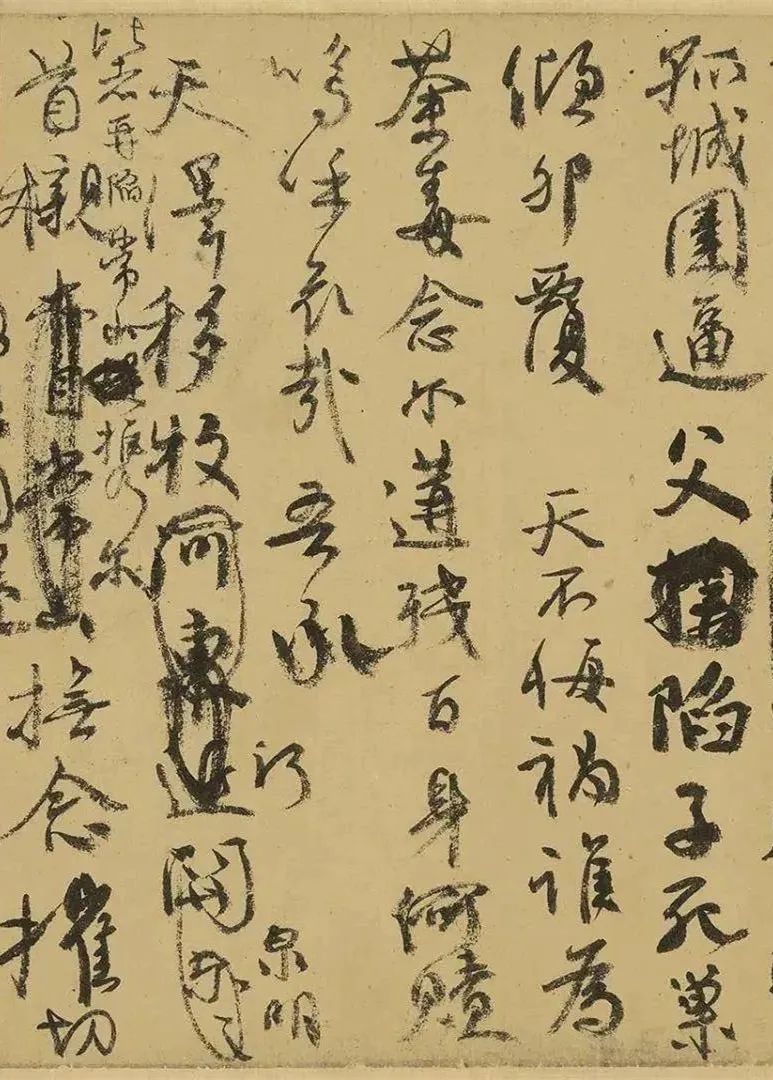 孤城圍逼父擒陷子死巢
傾卵覆 天不悔禍誰為
荼毒念爾遘殘百身何贖
嗚呼哀哉吾承
天澤移牧河東近關
河 泉明
比者再陷常山攜爾
首櫬亦自常山撫念摧切